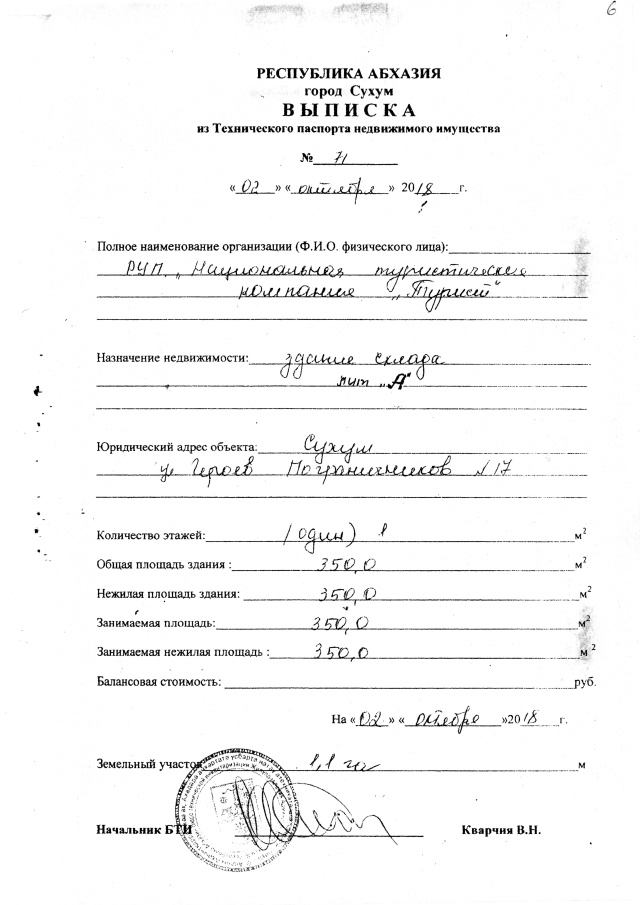 6
РЕСПУБЛИКА АБХАЗИЯ
город Сухум
ВЫПИСКА
из Технического паспорта недвижимого имущества
№ 71
«02» «октября» 2018 г.
Полное наименование организации (Ф.И.О. физического лица):
РУП „Национальная туристическая
компания „Турист“
Назначение недвижимости: здание склада
лит „А“
Юридический адрес объекта: Сухум
ул Героев Пограничников №17
Количество этажей: (один) 1 м2
Общая площадь здания : 350,0 м2
Нежилая площадь здания: 350,0 м2
Занимаемая площадь: 350,0 м2
Занимаемая нежилая площадь : 350,0 м2
Балансовая стоимость: руб.
На «02» « октября »2018 г.
Земельный участок 1,1 га м
Начальник БТИ Кварчия В.Н.